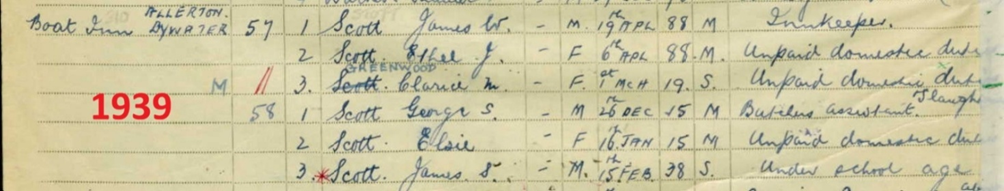 ALLERTON.
Boat Inn BYWATER 57 1 Scott James W. - M. 19th APL 88 M Innkeeper.
2 Scott. Ethel J. - F 6th APL 88. M. Unpaid domestic dut
GREENWOOD
M // 3. Scott. Clarice M. - F. 1st MCH 19. S. Unpaid domestic dut
1939 58 1 Scott George S. - M 26th DEC 15 M Butchers assistant. Slaugh
2 Scott. Elsie - F 16th JAN 15 M Unpaid domestic dut
3 *Scott. James S. - M. 15th FEB. 38 S. Under school age